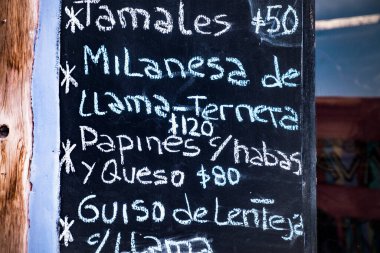 * Tamales $50
* Milanesa de
Llama-Ternera
$120
* Papines c/habas
y Queso $80
* Guiso de Lenteja
c/Llama